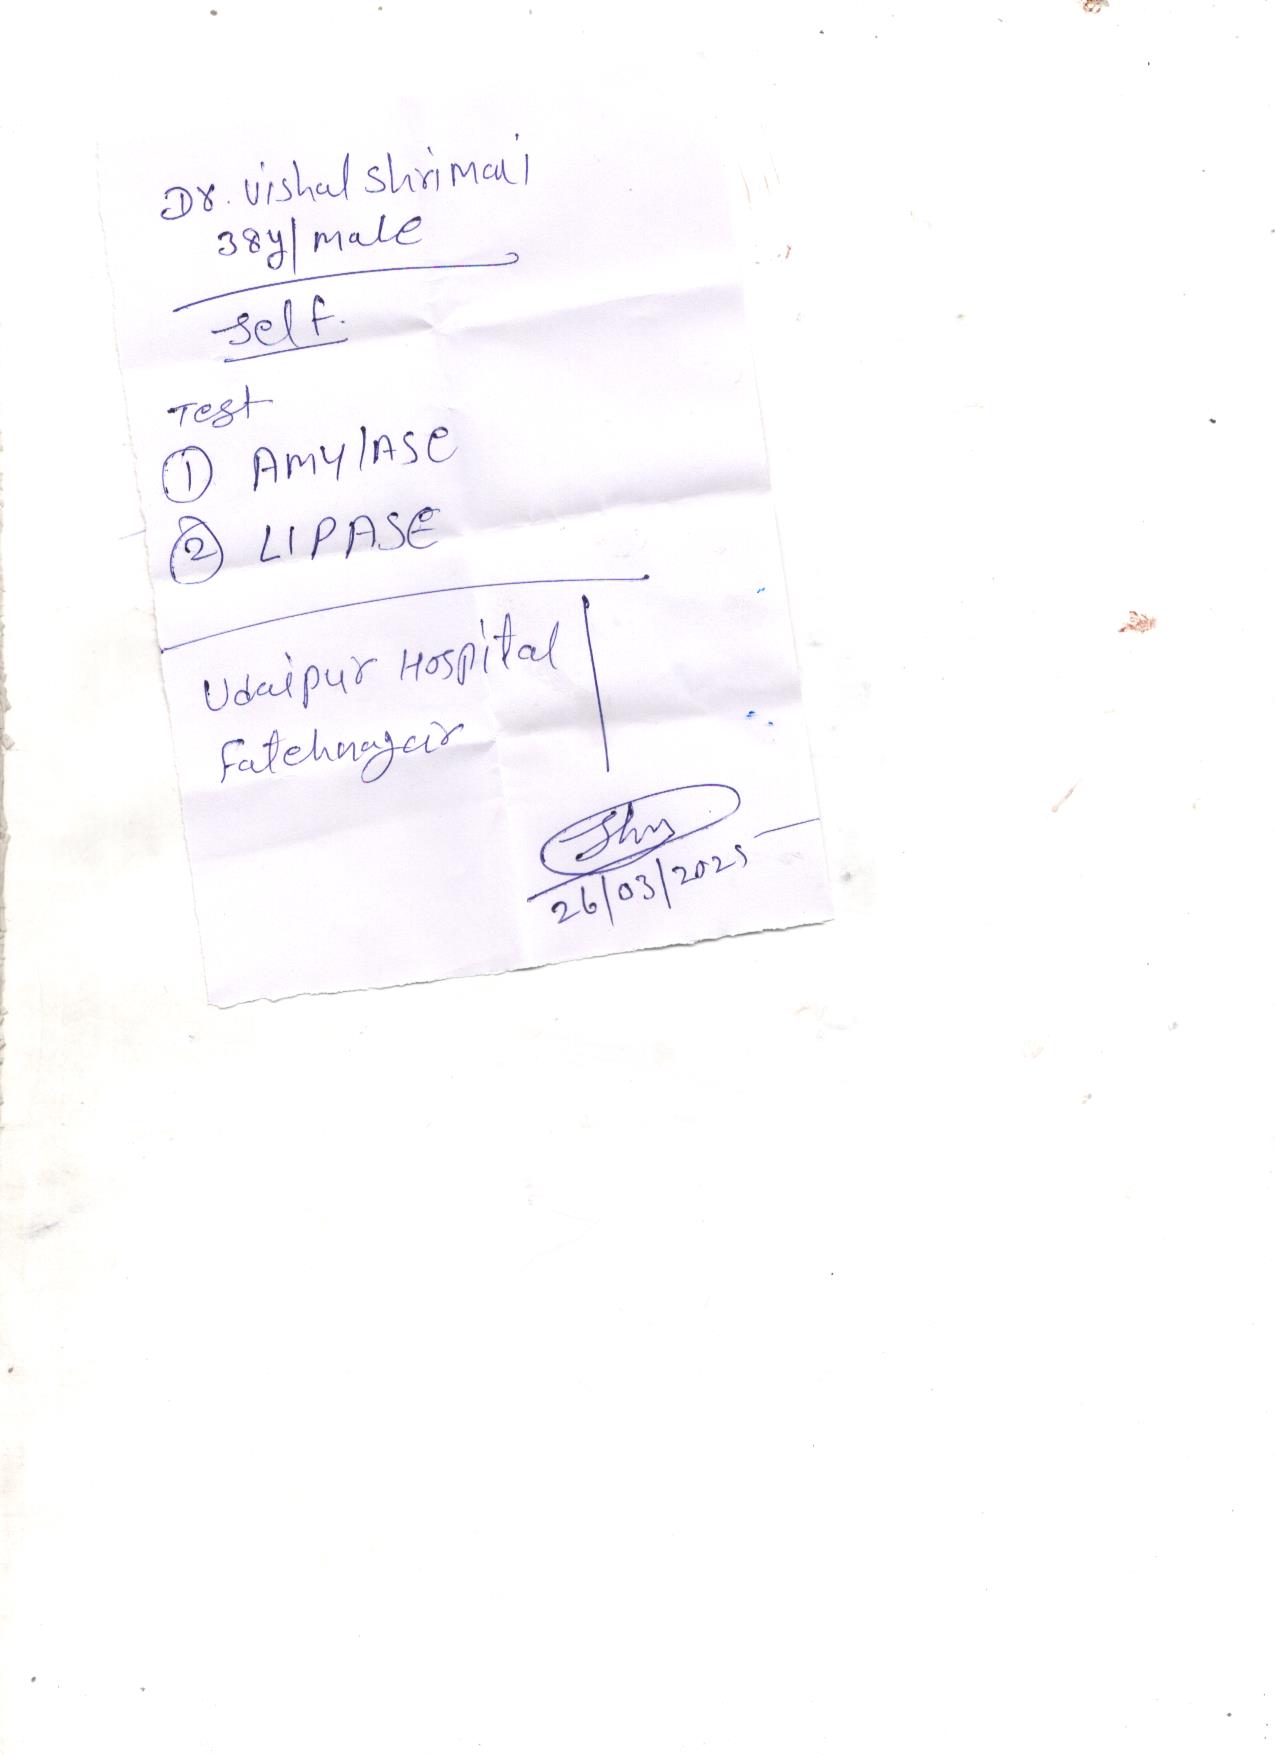 Dr. Vishal Shrimali
38y/male
Self.
Test
① AMYlASe
② LIPASE
Udaipur Hospital
Fatehnagar
26/03/2025